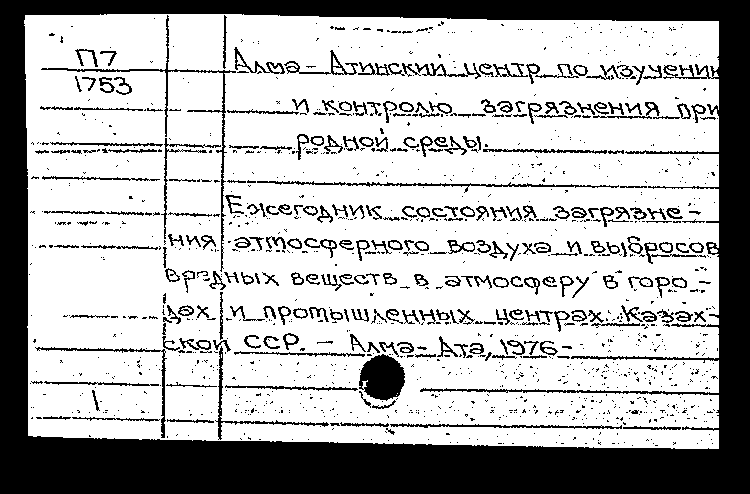 П7
1753
Алма-Атинский центр по изучению
и контролю загрязнения при
родной среды.
Ежегодник состояния загрязне-
ния атмосферного воздуха и выбросов
вредных веществ в атмосферу в горо-
дах и промышленных центрах Казах-
ской ССР. - Алма-Ата, 1976-
1